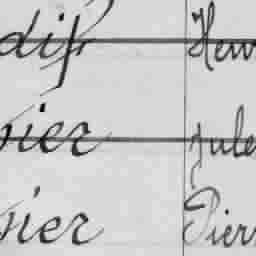 dif Henr
nier Jule
nier Pierr